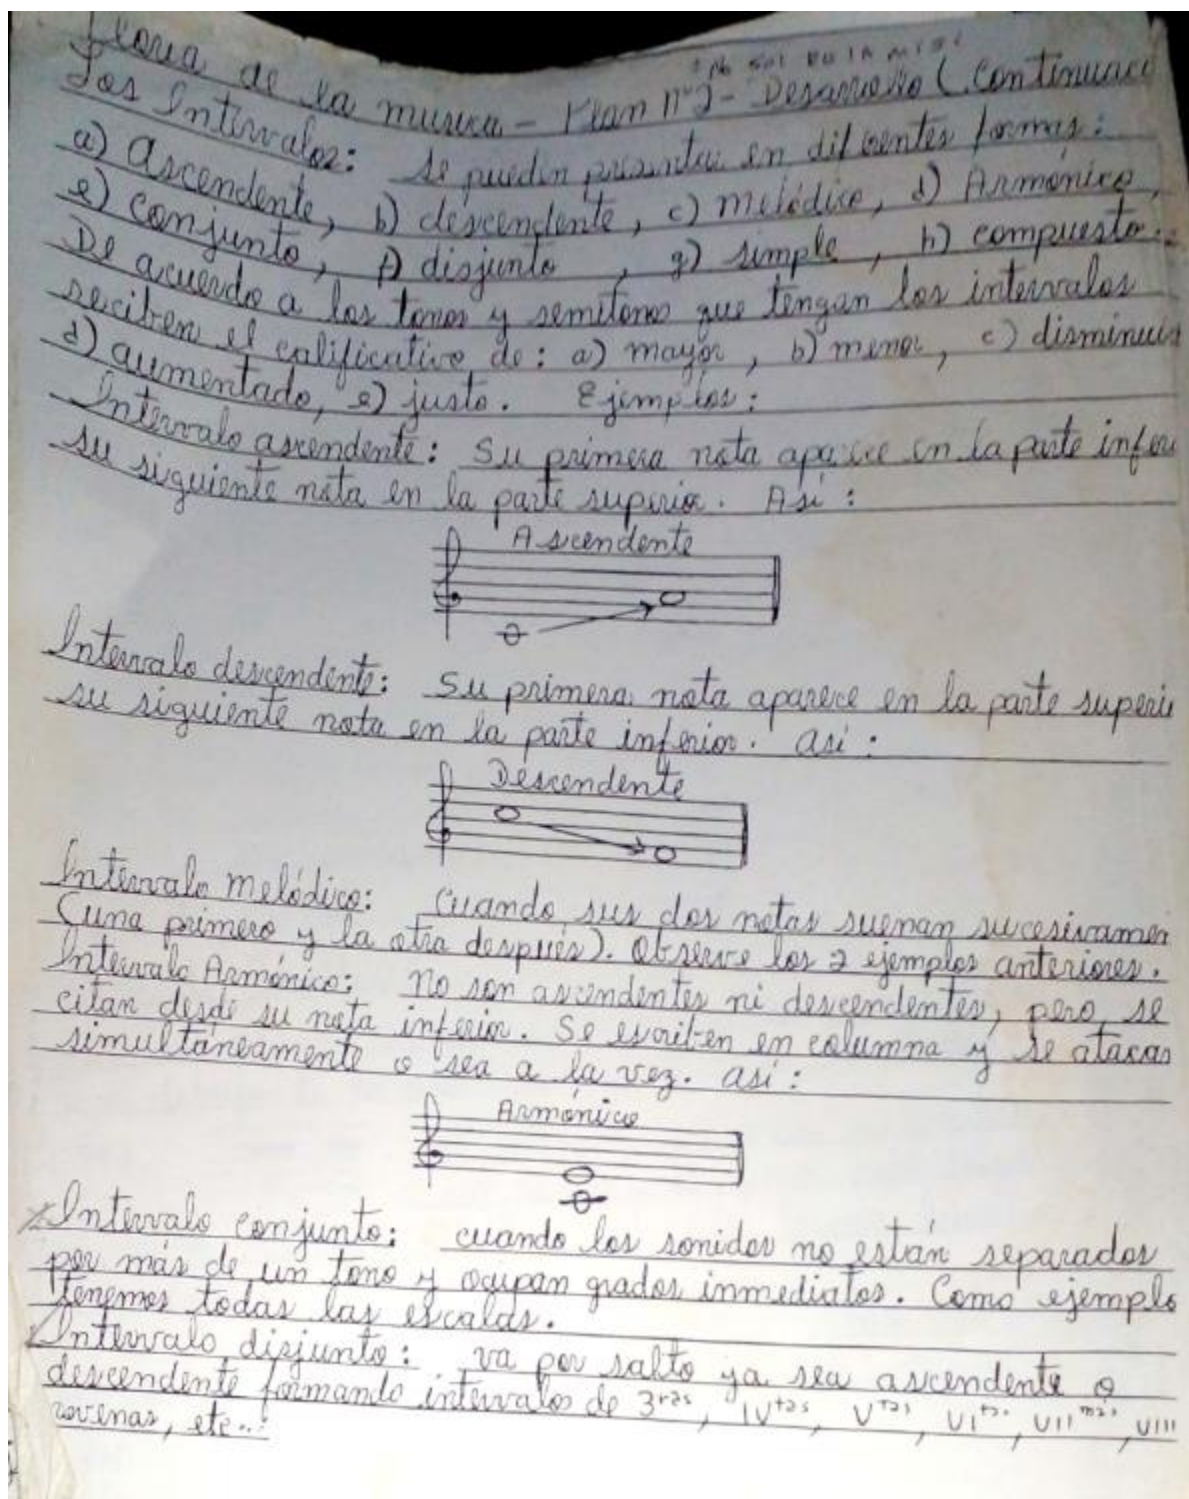 Teoria de la musica - Plan nº 2 - Desarrollo (Continuaci
Los Intervalos: se pueden presentar en diferentes formas:
a) Ascendente, b) descendente, c) melódico, d) Armónico,
e) conjunto, f) disjunto, g) simple, h) compuesto.
De acuerdo a los tonos y semitonos que tengan los intervalos
reciben el calificativo de: a) mayor, b) menor, c) disminuid
d) aumentado, e) justo. Ejemplos:
Intervalo ascendente: Su primera nota aparece en la parte inferi
su siguiente nota en la parte superior. Así:
Ascendente
Intervalo descendente: Su primera nota aparece en la parte superi
su siguiente nota en la parte inferior. así:
Descendente
Intervalo melódico: Cuando sus dos notas suenan sucesivamen
(una primero y la otra después). Observe los 2 ejemplos anteriores.
Intervalo Armónico: No son ascendentes ni descendentes, pero se
citan desde su nota inferior. Se escriben en columna y se atacan
simultáneamente o sea a la vez. así:
Armónico
Intervalo conjunto: cuando los sonidos no están separados
por más de un tono y ocupan grados inmediatos. Como ejemplo
tenemos todas las escalas.
Intervalo disjunto: va por salto ya sea ascendente o
descendente formando intervalos de 3ras, IVtas, Vtas, VItas, VIImas, VIII
novenas, etc..